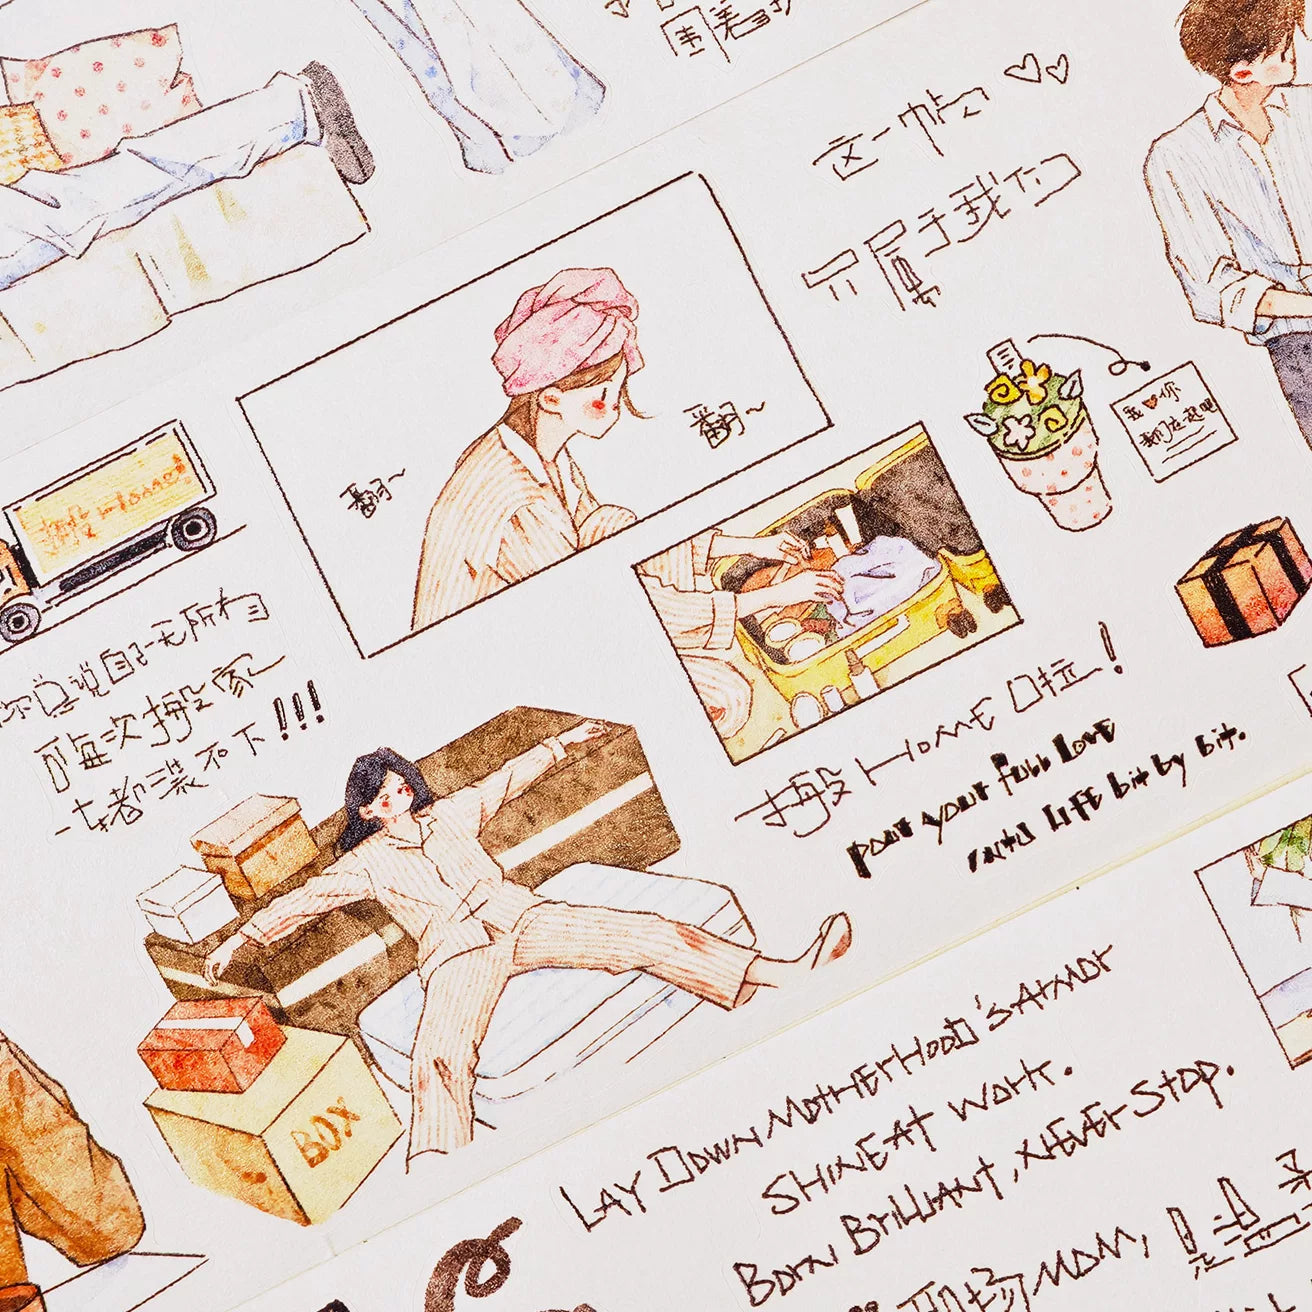 围着
这一帧
只属于我们
翻~
翻~
我你
我们在一起吧
搬 Home!
你总说自己一无所有
可每次搬家
一车都装不下!!!
搬HOME啦!
pour your full love
into LIFE bit by bit.
BOX
LAY DOWN MOTHERHOOD'S ARMOR
SHINE AT WORK.
BORN BRILLIANT, NEVER STOP.
职场MOM,